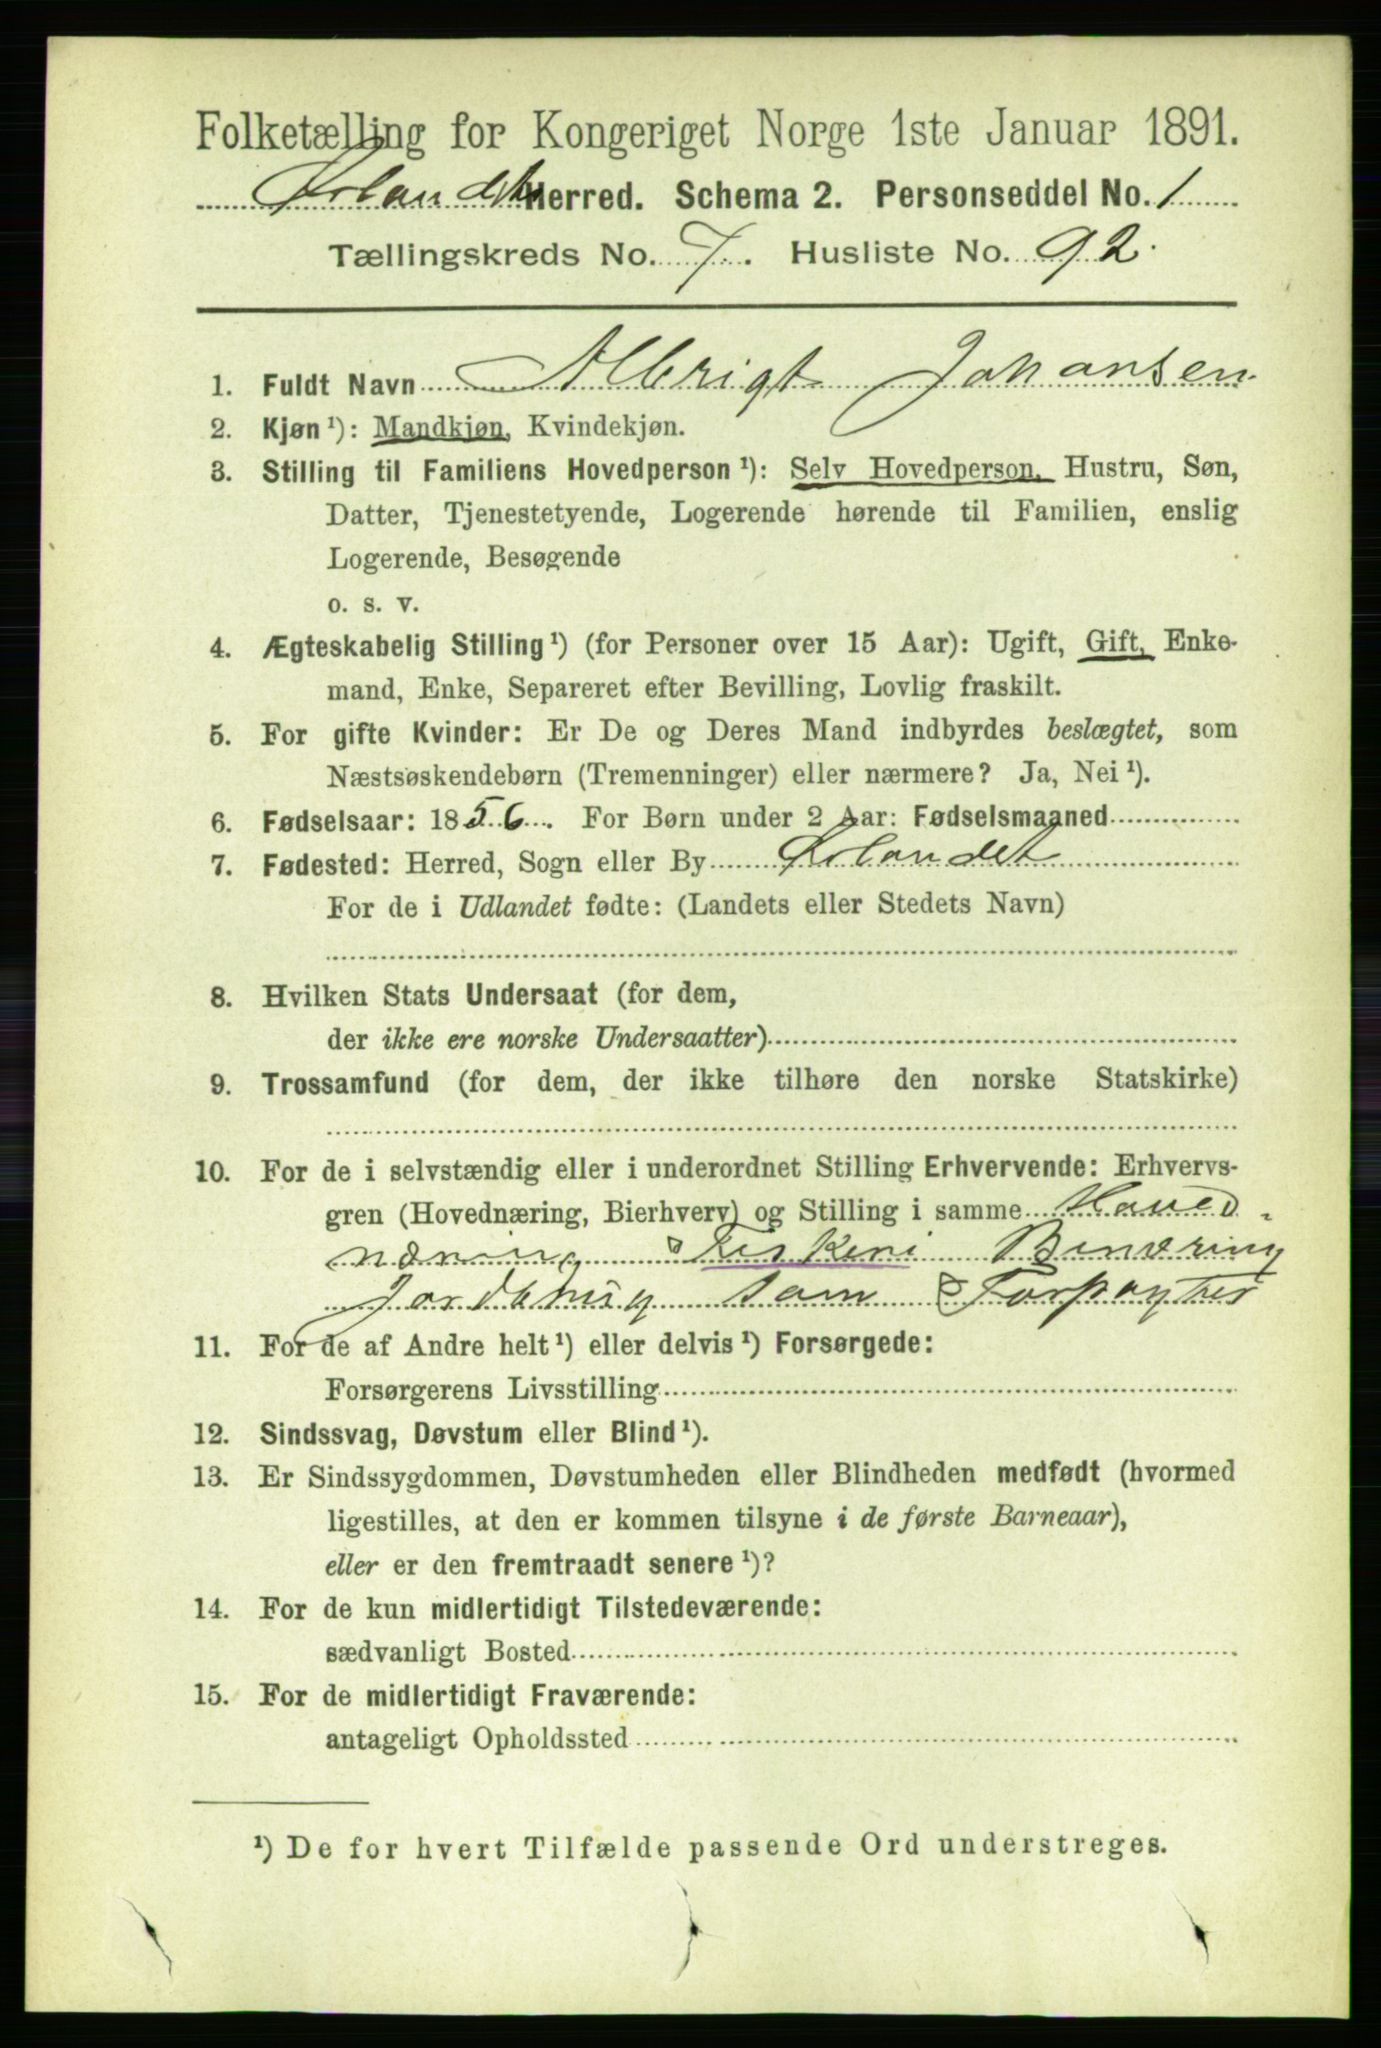 Folketælling for Kongeriget Norge 1ste Januar 1891.
Ørlandets Herred. Schema 2. Personseddel No. 1
Tællingskreds No. 7. Husliste No. 92.
1. Fuldt Navn Albrigt Johansen
2. Kjøn¹): Mandkjøn, Kvindekjøn.
3. Stilling til Familiens Hovedperson¹): Selv Hovedperson, Hustru, Søn,
Datter, Tjenestetyende, Logerende hørende til Familien, enslig
Logerende, Besøgende
o. s. v.
4. Ægteskabelig Stilling¹) (for Personer over 15 Aar): Ugift, Gift, Enke-
mand, Enke, Separeret efter Bevilling, Lovlig fraskilt.
5. For gifte Kvinder: Er De og Deres Mand indbyrdes beslægtet, som
Næstsøskendebørn (Tremenninger) eller nærmere? Ja, Nei¹).
6. Fødselsaar: 1856. For Børn under 2 Aar: Fødselsmaaned
7. Fødested: Herred, Sogn eller By Ørlandet
For de i Udlandet fødte: (Landets eller Stedets Navn)
8. Hvilken Stats Undersaat (for dem,
der ikke ere norske Undersaatter)
9. Trossamfund (for dem, der ikke tilhøre den norske Statskirke)
10. For de i selvstændig eller i underordnet Stilling Erhvervende: Erhvervs-
gren (Hovednæring, Bierhverv) og Stilling i samme Hoved-
næring Fiskeri Binæring
Jordbrug som Forpagter
11. For de af Andre helt¹) eller delvis¹) Forsørgede:
Forsørgerens Livsstilling
12. Sindssvag, Døvstum eller Blind¹).
13. Er Sindssygdommen, Døvstumheden eller Blindheden medfødt (hvormed
ligestilles, at den er kommen tilsyne i de første Barneaar),
eller er den fremtraadt senere¹)?
14. For de kun midlertidigt Tilstedeværende:
sædvanligt Bosted
15. For de midlertidigt Fraværende:
antageligt Opholdssted
¹) De for hvert Tilfælde passende Ord understreges.